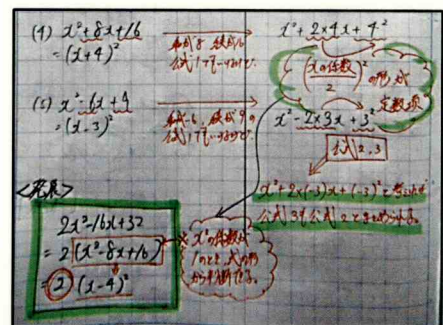 (4) x²+8x+16
= (x+4)²
和が8、積が16
公式1でも一つずつで。
x²+2×4x+4²
(xの係数/2)² の形が
定数項
(5) x²-6x+9
= (x-3)²
和が-6、積が9の
公式1でも一つずつで。
x²-2×3x+3²
公式2,3
x²+2×(-3)x+(-3)²と考えれば
公式3も公式2とまとめられる。
<発展>
2x²-16x+32
= 2(x²-8x+16)
= 2(x-4)²
※x²の係数が
1のとき、式の形
から判断できる。